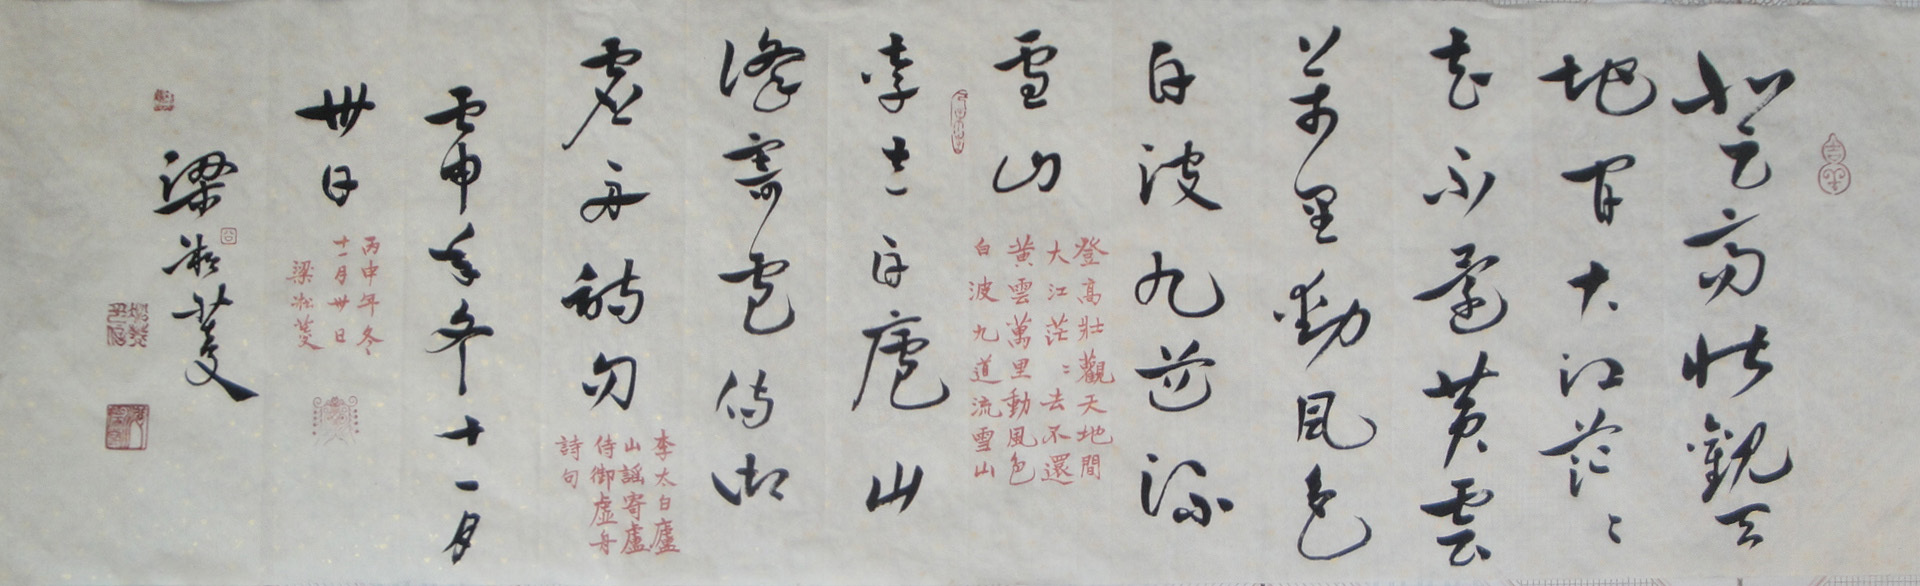 登高壯觀天
地間大江茫〻
去不還黃雲
萬里動風色
白波九道流
雪山
登高壯觀天地間
大江茫〻去不還
黃雲萬里動風色
白波九道流雪山
李太白廬山
謠寄盧侍御
虛舟詩句
李太白廬
山謠寄盧
侍御虛舟
詩句
丙申年冬十一月
卅日
丙申年冬
十一月卅日
梁凇菱
梁凇菱